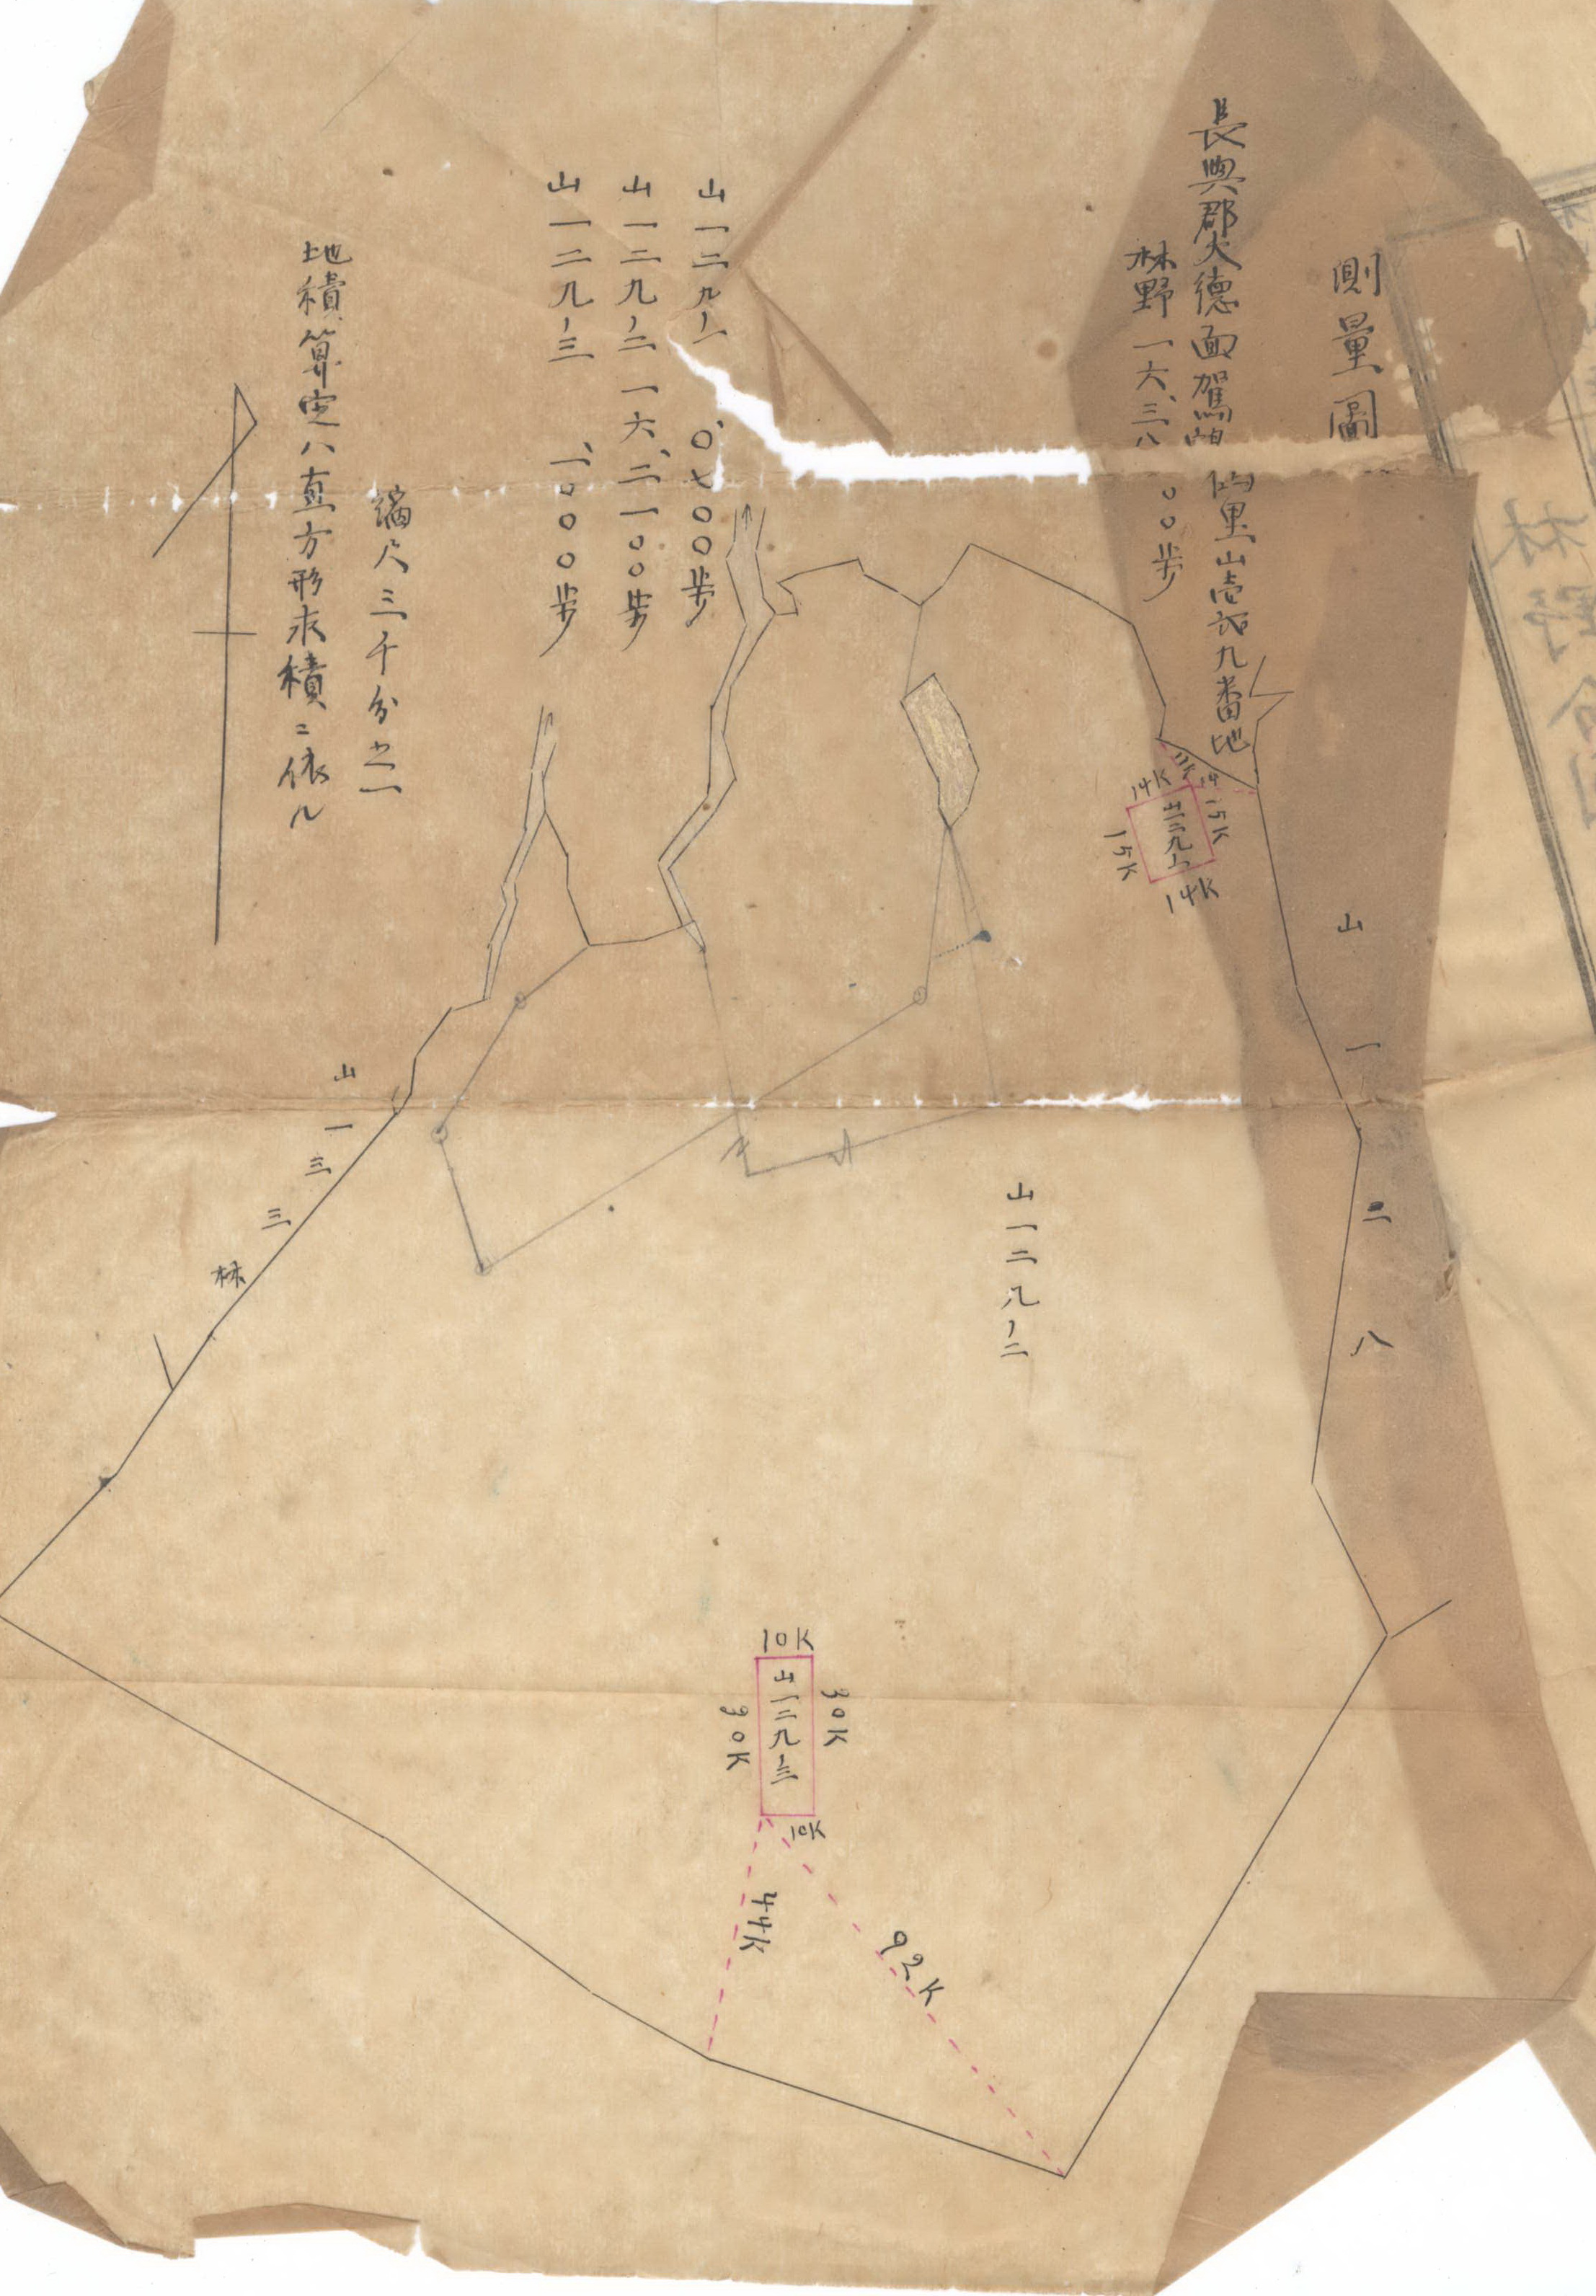 測量圖
長興郡大德面駕山里山壱弐九番地
林野 一六、三八〇〇歩
山一二九ノ一 、〇七〇〇歩
山一二九ノ二 一六、二一〇〇歩
山一二九ノ三 、一〇〇〇歩
縮尺三千分之一
地積算定ハ直方形求積ニ依ル
山一二八
11K
14
14K
15K
山一二九ノ一
15K
14K
山一二九ノ二
山一三三
林
10K
30K
山一二九ノ三
30K
10K
44K
92K